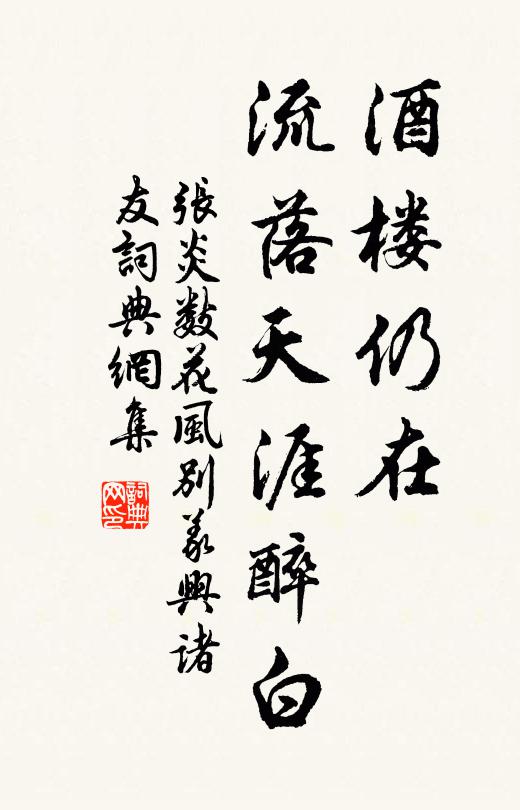 酒楼仍在
流落天涯醉白
張炎數花風別義興諸
友詞典網集
詞典网印